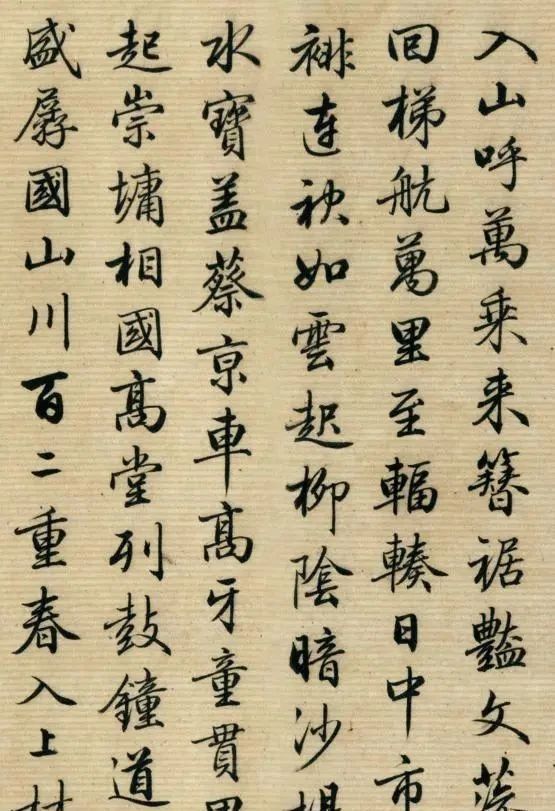 入山呼萬乘来簪裾豔文
回梯航萬里至輻輳日中市
裶連袂如雲起柳陰暗沙堤
水寶盖蔡京車髙牙童貫
起崇墉相國髙堂列鼓鐘道
盛孱國山川百二重春入上林